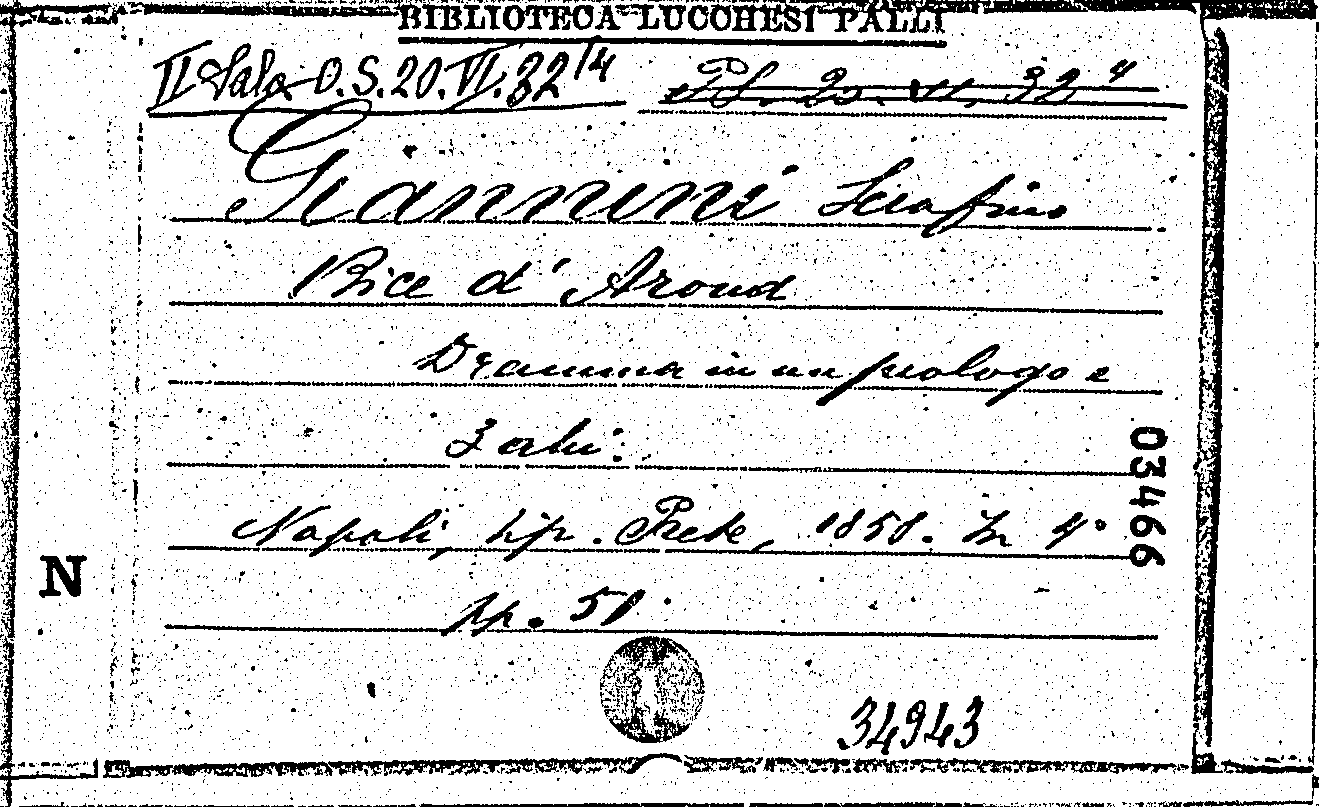 BIBLIOTECA LUCCHESI PALLI
II Sala O.S.20.VI.32/4
Giannini Serafino
Bice d' Aroud
Dramma in un prologo e
3 atti:
Napoli, tip. Prete, 1858. In 4°
pp. 51
03466
N
34943